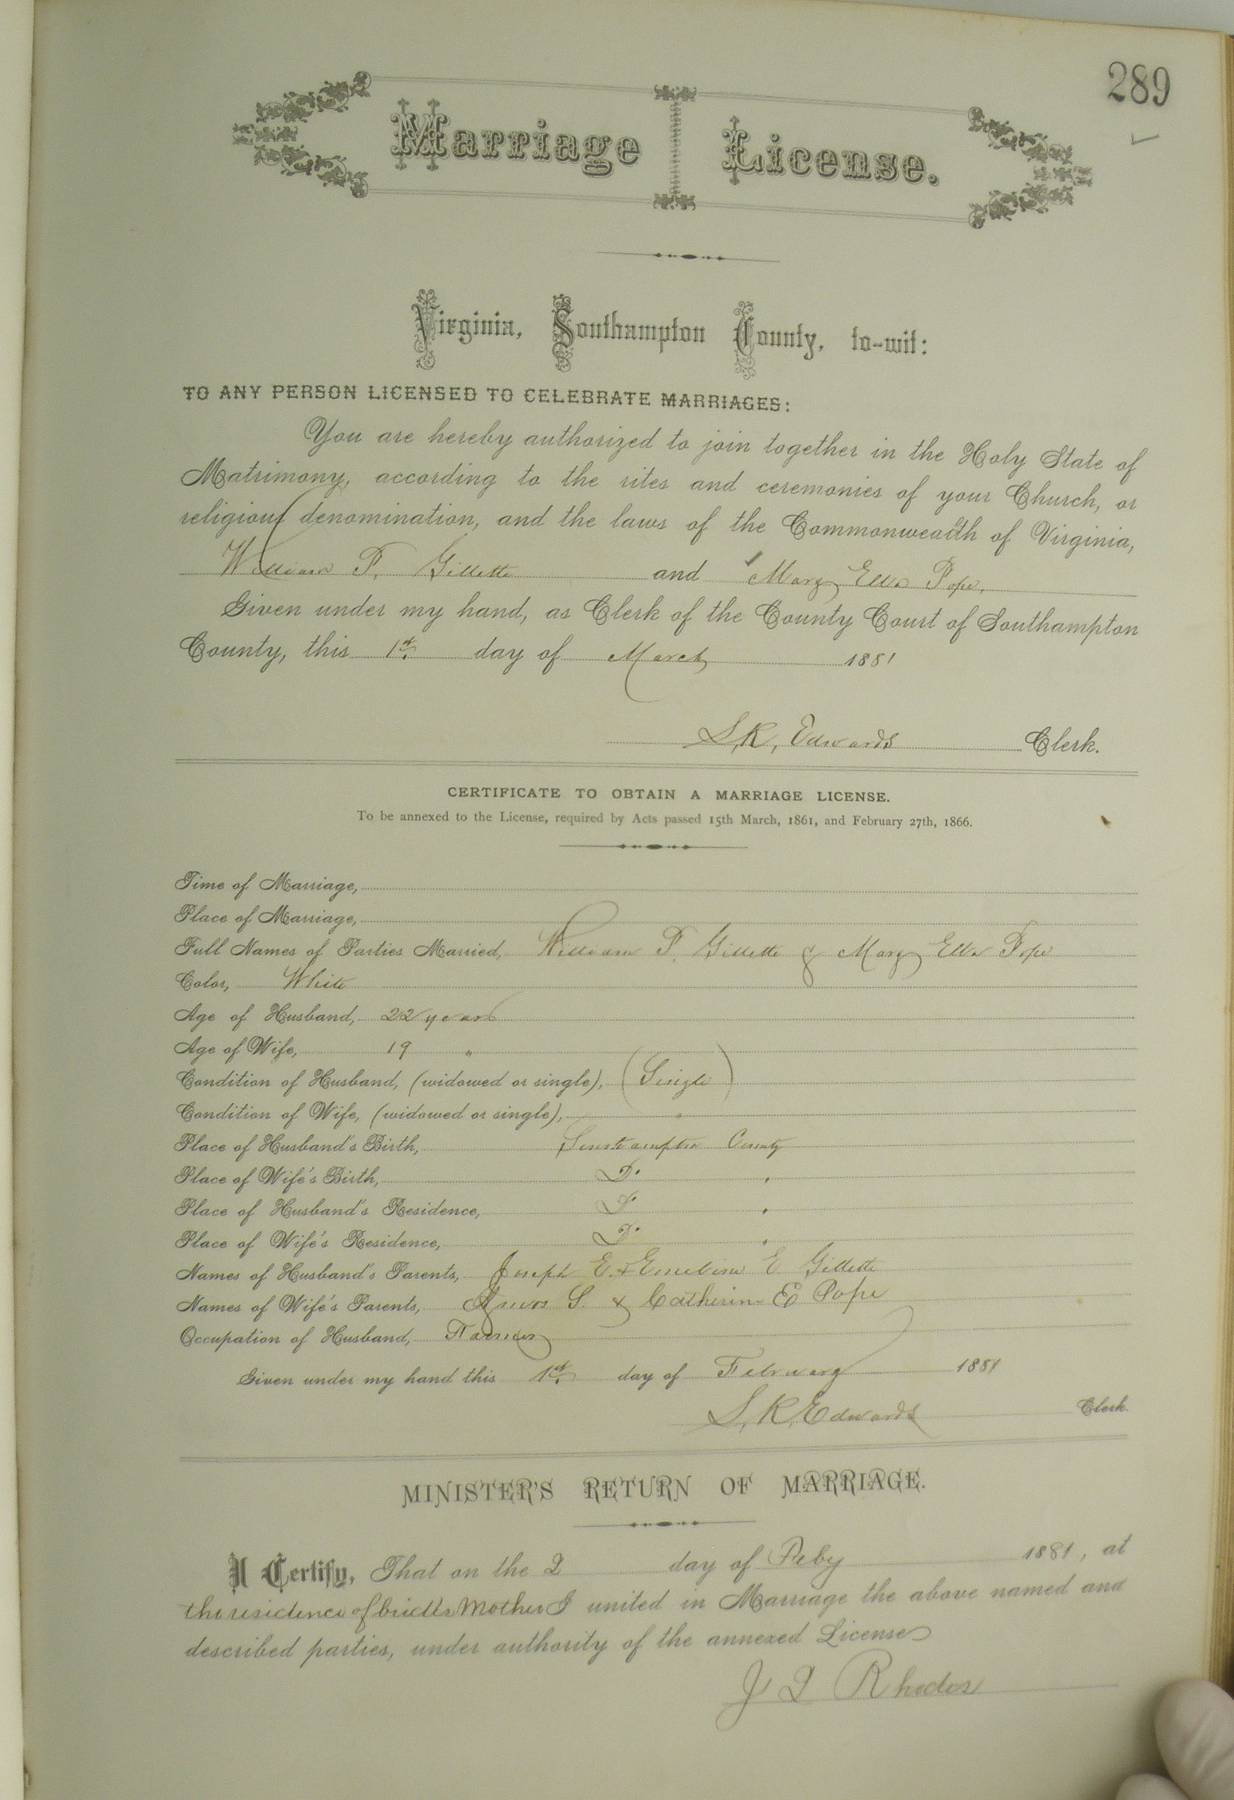 289
Marriage License.
Virginia, Southampton County, to-wit:
TO ANY PERSON LICENSED TO CELEBRATE MARRIAGES:
You are hereby authorized to join together in the Holy State of
Matrimony, according to the rites and ceremonies of your Church, or
religious denomination, and the laws of the Commonwealth of Virginia,
William F. Gillette and Mary Ella Pope,
Given under my hand, as Clerk of the County Court of Southampton
County, this 1st. day of March 1881
S, K, Edwards Clerk.
CERTIFICATE TO OBTAIN A MARRIAGE LICENSE.
To be annexed to the License, required by Acts passed 15th March, 1861, and February 27th, 1866.
Time of Marriage,
Place of Marriage,
Full Names of Parties Married, William F. Gillette & Mary Ella Pope
Color, White
Age of Husband, 22 years
Age of Wife, 19 "
Condition of Husband, (widowed or single), (Single)
Condition of Wife, (widowed or single), "
Place of Husband's Birth, Southampton County
Place of Wife's Birth, Do "
Place of Husband's Residence, Do "
Place of Wife's Residence, Do "
Names of Husband's Parents, Joseph E. & Emeline E Gillette
Names of Wife's Parents, S. & Catherine E Pope
Occupation of Husband, Farmer
Given under my hand this 1st. day of February 1881
S, K, Edwards Clerk.
MINISTER'S RETURN OF MARRIAGE.
I Certify, That on the 2 day of Feby 1881, at
the residence of bride's Mother I united in Marriage the above named and
described parties, under authority of the annexed License
Rhodes